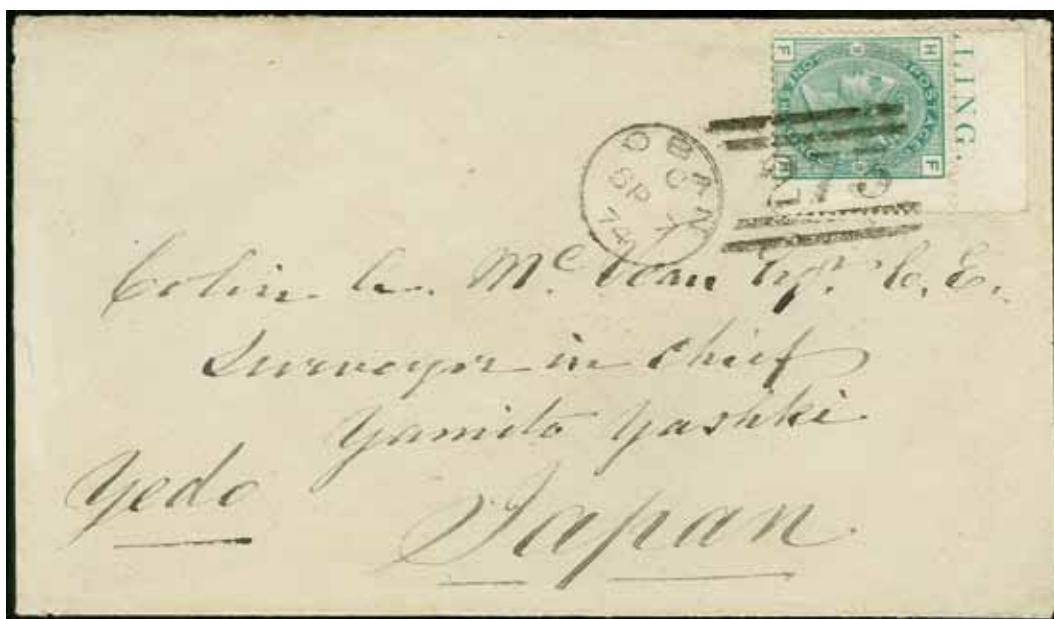 LLING.
H F
POSTAGE ONE
F H
OBAN
C
SP 7
74
Colin A. McVean Esqr. C.E.
Surveyor in Chief
Yamito Yashki
Yedo
Japan